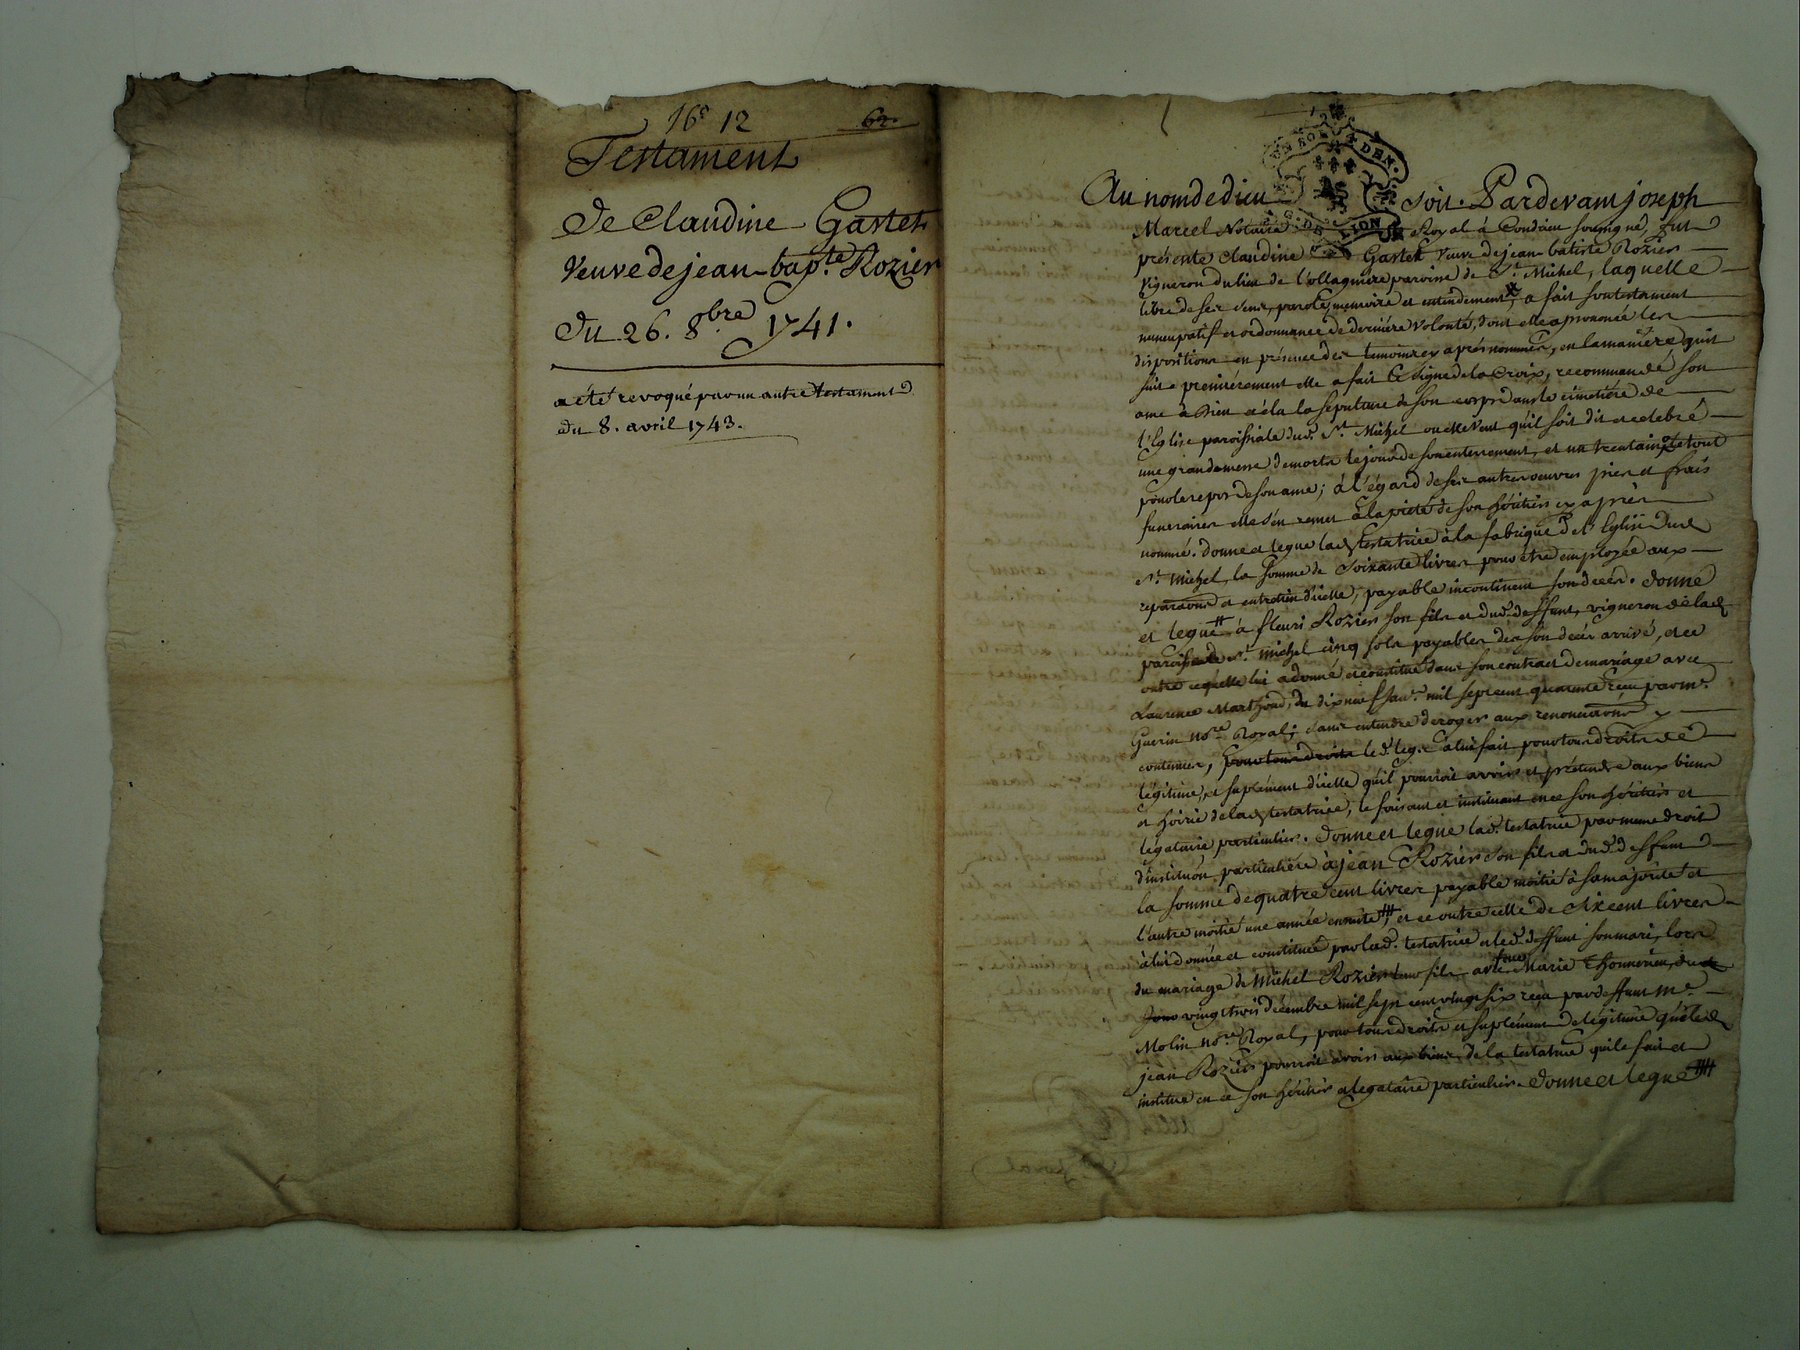 16e 12
62.
Testament
de Claudine Gastet
Veuve de jean-bap.te Rozier
du 26. 8bre 1741.
a été revoqué par un autre testament
du 8. avril 1743.
Au nom de dieu soit. Pardevant joseph
Marcel Notaire Royal à Condrieu soussigné, fut
présente Claudine Gastet veuve de jean-batiste Rozier
vigneron du lieu de paroisse de St. Michel, laquelle
libre de ses sens, parole, memoire et entendement, a fait son testament
nuncupatif et ordonnance de derniére volonté, dont elle a prononcé les
dispositions en présence des temoins cy aprés nommés, en la maniére qui
suit. premiérement elle a fait le signe de la Croix, recommandé son
ame à Dieu la sepulture de son corps dans le cimetiére de
l'Eglise paroissiale dud. St. Michel ou elle veut qu'il soit dit et celebré
une grande messe de morts le jour de son enterrement, et un trentain, le tout
pour le repos de son ame; à l'égard de ses autres oeuvres pies et frais
funeraires elle s'en remet à la pieté de son héritier cy aprés
nommé. donne et legue lad. testatrice à la fabrique de l'Eglise dud.
St. Michel, la somme de soixante livres pour être employée aux
reparaons et entretien d'icelle, payable incontinent son decés. donne
et legue # à fleuri Rozier son fils et dud. deffunt, vigneron de lad.
paroisse de St. Michel cinq sols payables des son decés arrivé, et ce
outre ce qu'elle lui a donné et constitué dans son contract de mariage avec
Laurence Marthoud, du dix neuf janv. mil sept cent quarante reçu par me.
Guerin nore. Royal, sans entendre deroger aux renonciaons y
contenues, le d. leg. à lui fait pour tous droits de
légitime, et suplément d'icelle qu'il pourroit avoir et prétendre aux biens
et hoirie de lad. testatrice, le faisant et instituant en ce son héritier et
légataire particulier. donne et legue lad. testatrice par meme droit
d'instituon particuliére à jean Rozier son fils et dud. deffunt
la somme de quatre cent livres payable moitié à sa majorité et
l'autre moitié une année ensuite #, et ce outre celle de six cent livres
à lui donnée et constituée par lad. testatrice et led. deffunt son mari, lors
du mariage de Michel Rozier leur fils avec Marie
vingt trois décembre mil sept cent vingt six reçu par deffunt me
Molin nore. Royal, pour tous droits et suplément de légitime que led.
jean Rozier pourroit avoir aux biens de la testatrice qui le fait et
institue en ce son héritier et legataire particulier. donne et legue #